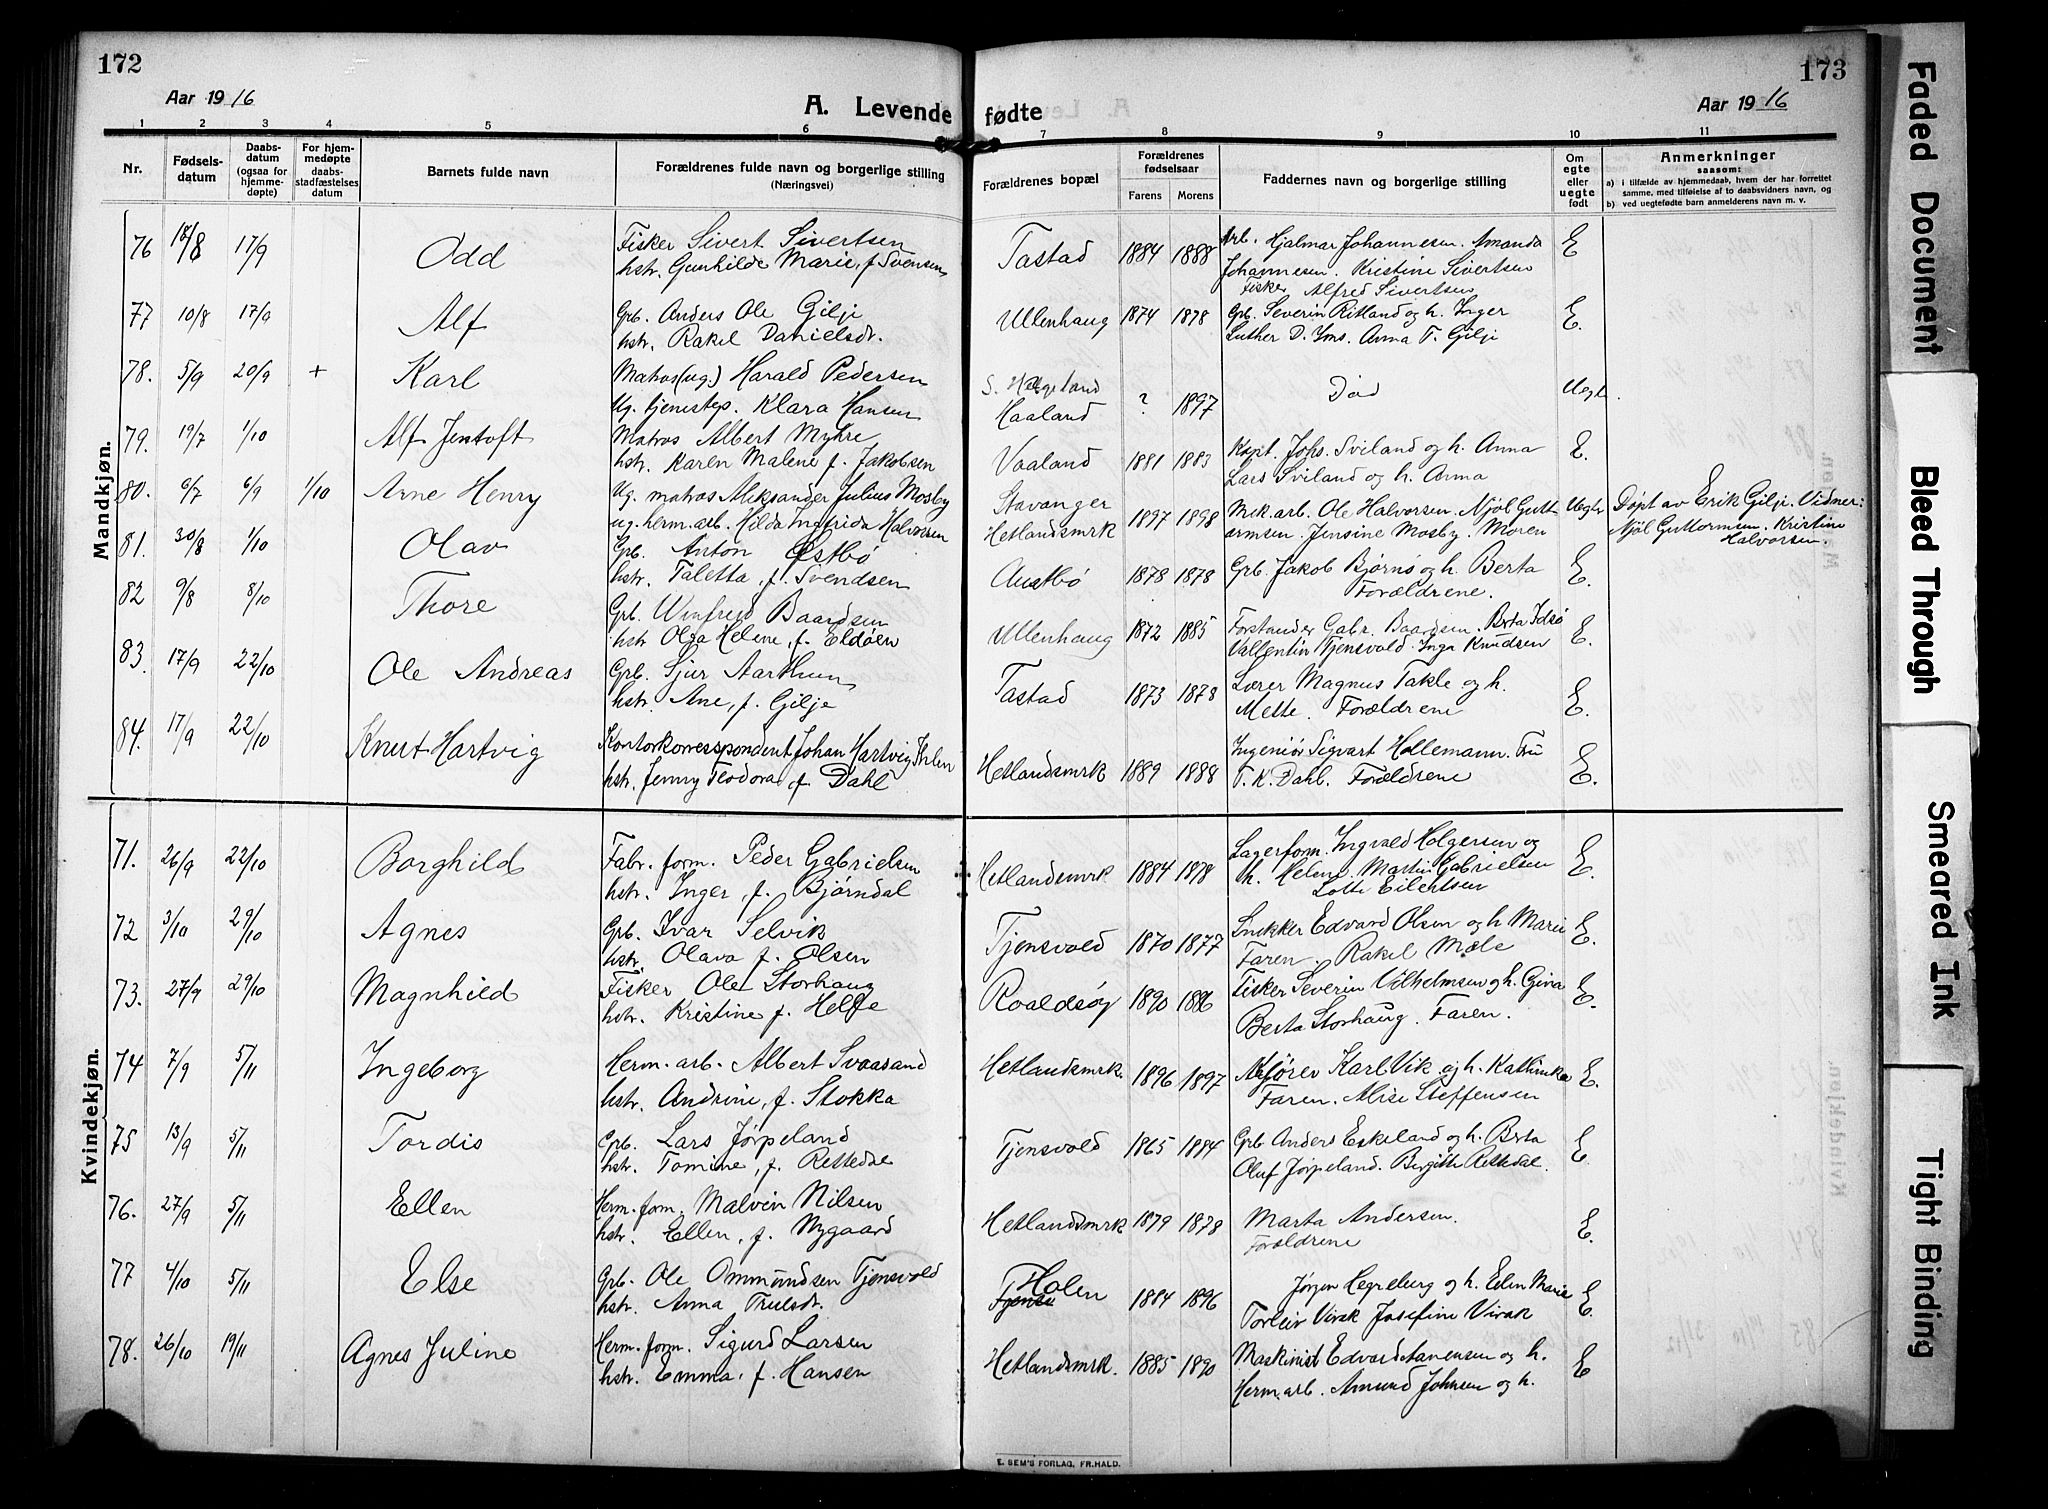 172
Aar 1916
A. Levende
1 2 3 4 5 6
Nr.
Fødsels-
datum
Daabs-
datum
(ogsaa for
hjemme-
døpte)
For hjem-
medøpte
daabs-
stadfæstelses
datum
Barnets fulde navn
Forældrenes fulde navn og borgerlige stilling
(Næringsvei)
173
fødte
Aar 1916
7 8 9 10 11
Forældrenes bopæl
Forældrenes
fødselsaar
Farens Morens
Faddernes navn og borgerlige stilling
Om
egte
eller
uegte
født
Anmerkninger
saasom:
a) i tilfælde av hjemmedaab, hvem der har forrettet
samme, med tilføielse af to daabsvidners navn, og
b) ved uegtefødte barn anmelderens navn m. v.
Mandkjøn.
76 18/8 17/9 Odd Fisker Sivert Sivertsen Tastad 1884 1888 Arb. Hjalmar Johannesen. Amanda E
hstr. Gunhilde Marie, f. Svensen Johannesen. Kristine Sivertsen
Fisker Alfred Sivertsen
77 10/8 17/9 Alf Grb. Anders Ole Gilje Ullenhaug 1874 1878 Grb. Severin Ritland og h. Inger E.
hstr. Rakel Danielsdt. Luther D. Ims. Anna T. Gilje
78. 5/9 20/9 + Karl Matros (ug.) Harald Pedersen S. Helgeland ? 1897 Død Uegte
Ug. tjenestep. Klara Hansen Haaland
79. 19/7 1/10 Alf Jentoft Matros Albert Myhre Vaaland 1881 1883 Kapt. Johs. Sviland og h. Anna E.
hstr. Karen Malene f. Jakobsen Lars Sviland og h. Anna
80. 6/7 6/9 1/10 Arne Henry Ug. matros Aleksander Julius Mosby Stavanger 1897 1898 Mek. arb. Ole Halvorsen. Njøl Gutt Uegte Døpt av Erik Gilje. Vidner:
ug. herm. arb. Hilda Ingfrida Halvorsen Hetlandsmrk armsen. Jensine Mosby. Moren Njøl Guttormsen. Kristine
Halvorsen.
81. 30/8 1/10 Olav Grb. Anton Østbø Austbø 1878 1878 Grb. Jakob Bjørnø og h. Berta E.
hstr. Taletta, f. Svendsen Forældrene.
82 9/8 8/10 Thore Grb. Winfred Baardsen Ullenhaug 1872 1885 Forstander Gabr. Baardsen. Berta Idsø E.
hstr Olga Helene, f. Eldøen Vallentin Tjensvold. Inga Knudsen
83. 17/9 22/10 Ole Andreas Grb. Sjur Aarthun Tastad 1873 1878 Lærer Magnus Takle og h. E.
hstr. Ane, f. Gilje Mette. Forældrene
84. 17/9 22/10 Knut Hartvig Kontorkorrespondent Johan Hartvig Hetlandsmrk 1889 1888 Ingeniør Sigvart Hollemann. Fru E.
hstr. Jenny Teodora f. Dahl T. K. Dahl. Forældrene
Kvindekjøn.
71. 26/9 22/10 Borghild Fabr. form. Peder Gabrielsen Hetlandsmrk 1884 1878 Lagerform. Ingvald Holgersen og E.
hstr. Inger, f. Bjørndal h. Helene. Martin Gabrielsen
Lotte Eilertsen
72 3/10 29/10 Agnes Grb. Ivar Selvik Tjensvold 1870 1877 Snekker Edvard Olsen og h Marie E.
hstr. Olava f. Olsen Faren. Rakel Mæle
73. 27/9 29/10 Magnhild Fisker Ole Storhaug Roaldsøy 1890 1886 Fisker Severin Vilhelmsen og h. Gina E.
hstr. Kristine f. Helle Berta Storhaug. Faren.
74 7/9 5/11 Ingeborg Herm. arb. Albert Svaasand Hetlandsmrk 1896 1897 Kjører Karl Vik og h. Kathinka E.
hstr. Andrine, f. Stokka Faren. Alise Steffensen
75 13/9 5/11 Tordis Grb. Lars Jørpeland Tjensvold 1865 1884 Grb Anders Eskeland og h. Berta E
hstr. Tomine, f. Rettedal Oluf Jørpeland. Birgitte Rettedal.
76. 27/9 5/11 Ellen Herm. form. Malvin Nilsen Hetlandsmrk 1879 1878 Marta Andersen. E.
hstr. Ellen, f. Nygaard Forældrene
77 4/10 5/11 Else Grb. Ole Ommundsen Tjensvold Holen 1884 1896 Jørgen Hegreberg og h. Elen Marie E.
hstr. Anna Trulsdt. Tjensv Torleiv Virak Josefine Virak
78. 26/10 19/11 Agnes Juline Herm. form. Sigurd Larsen Hetlandsmrk. 1885 1890 Maskinist Edvard og h. E
hstr. Emma, f. Hansen Herm. arb. Amund Johnsen og h.
E. SEM'S FORLAG, FR.HALD.
Faded Document
Bleed Through
Smeared Ink
Tight Binding